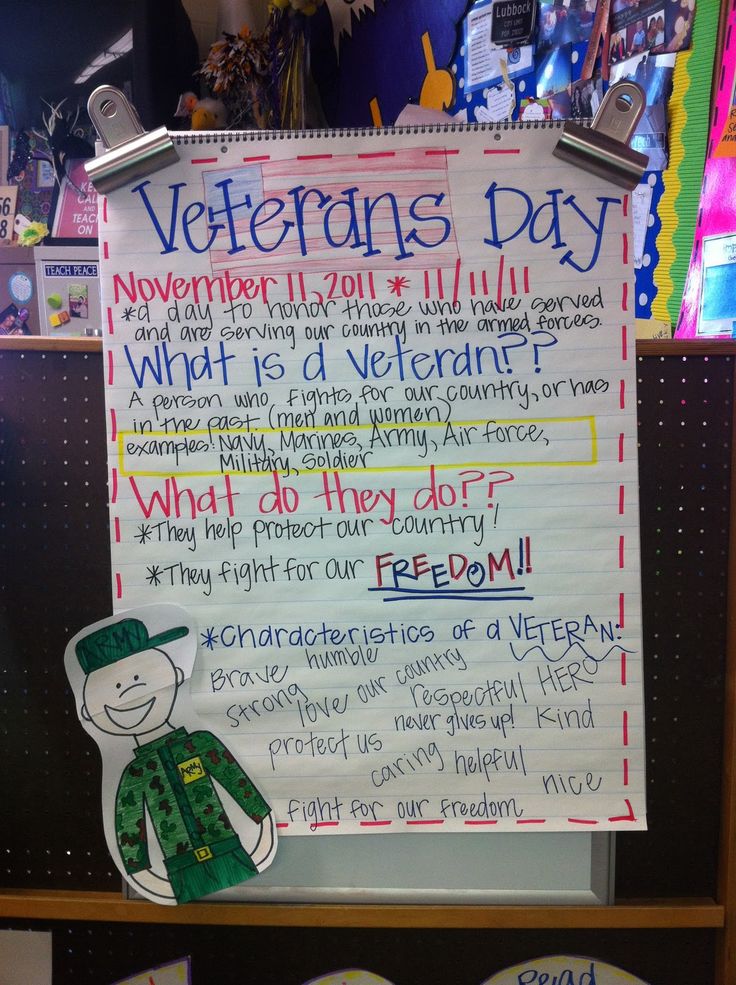 Lubbock
KEEP
CALM
AND
TEACH
ON
TEACH PEACE
Veterans Day
November 11, 2011 * 11/11/11
*a day to honor those who have served
and are serving our country in the armed forces.
What is a Veteran??
A person who fights for our country, or has
in the past. (men and women)
examples: Navy, Marines, Army, Air force,
Military, Soldier
What do they do??
*They help protect our country!
*They fight for our FREEDOM!!
*Characteristics of a VETERAN:
Brave humble
strong love our country respectful HERO
protect us never gives up! Kind
caring helpful
nice
fight for our freedom
ARMY
ARMY
Read